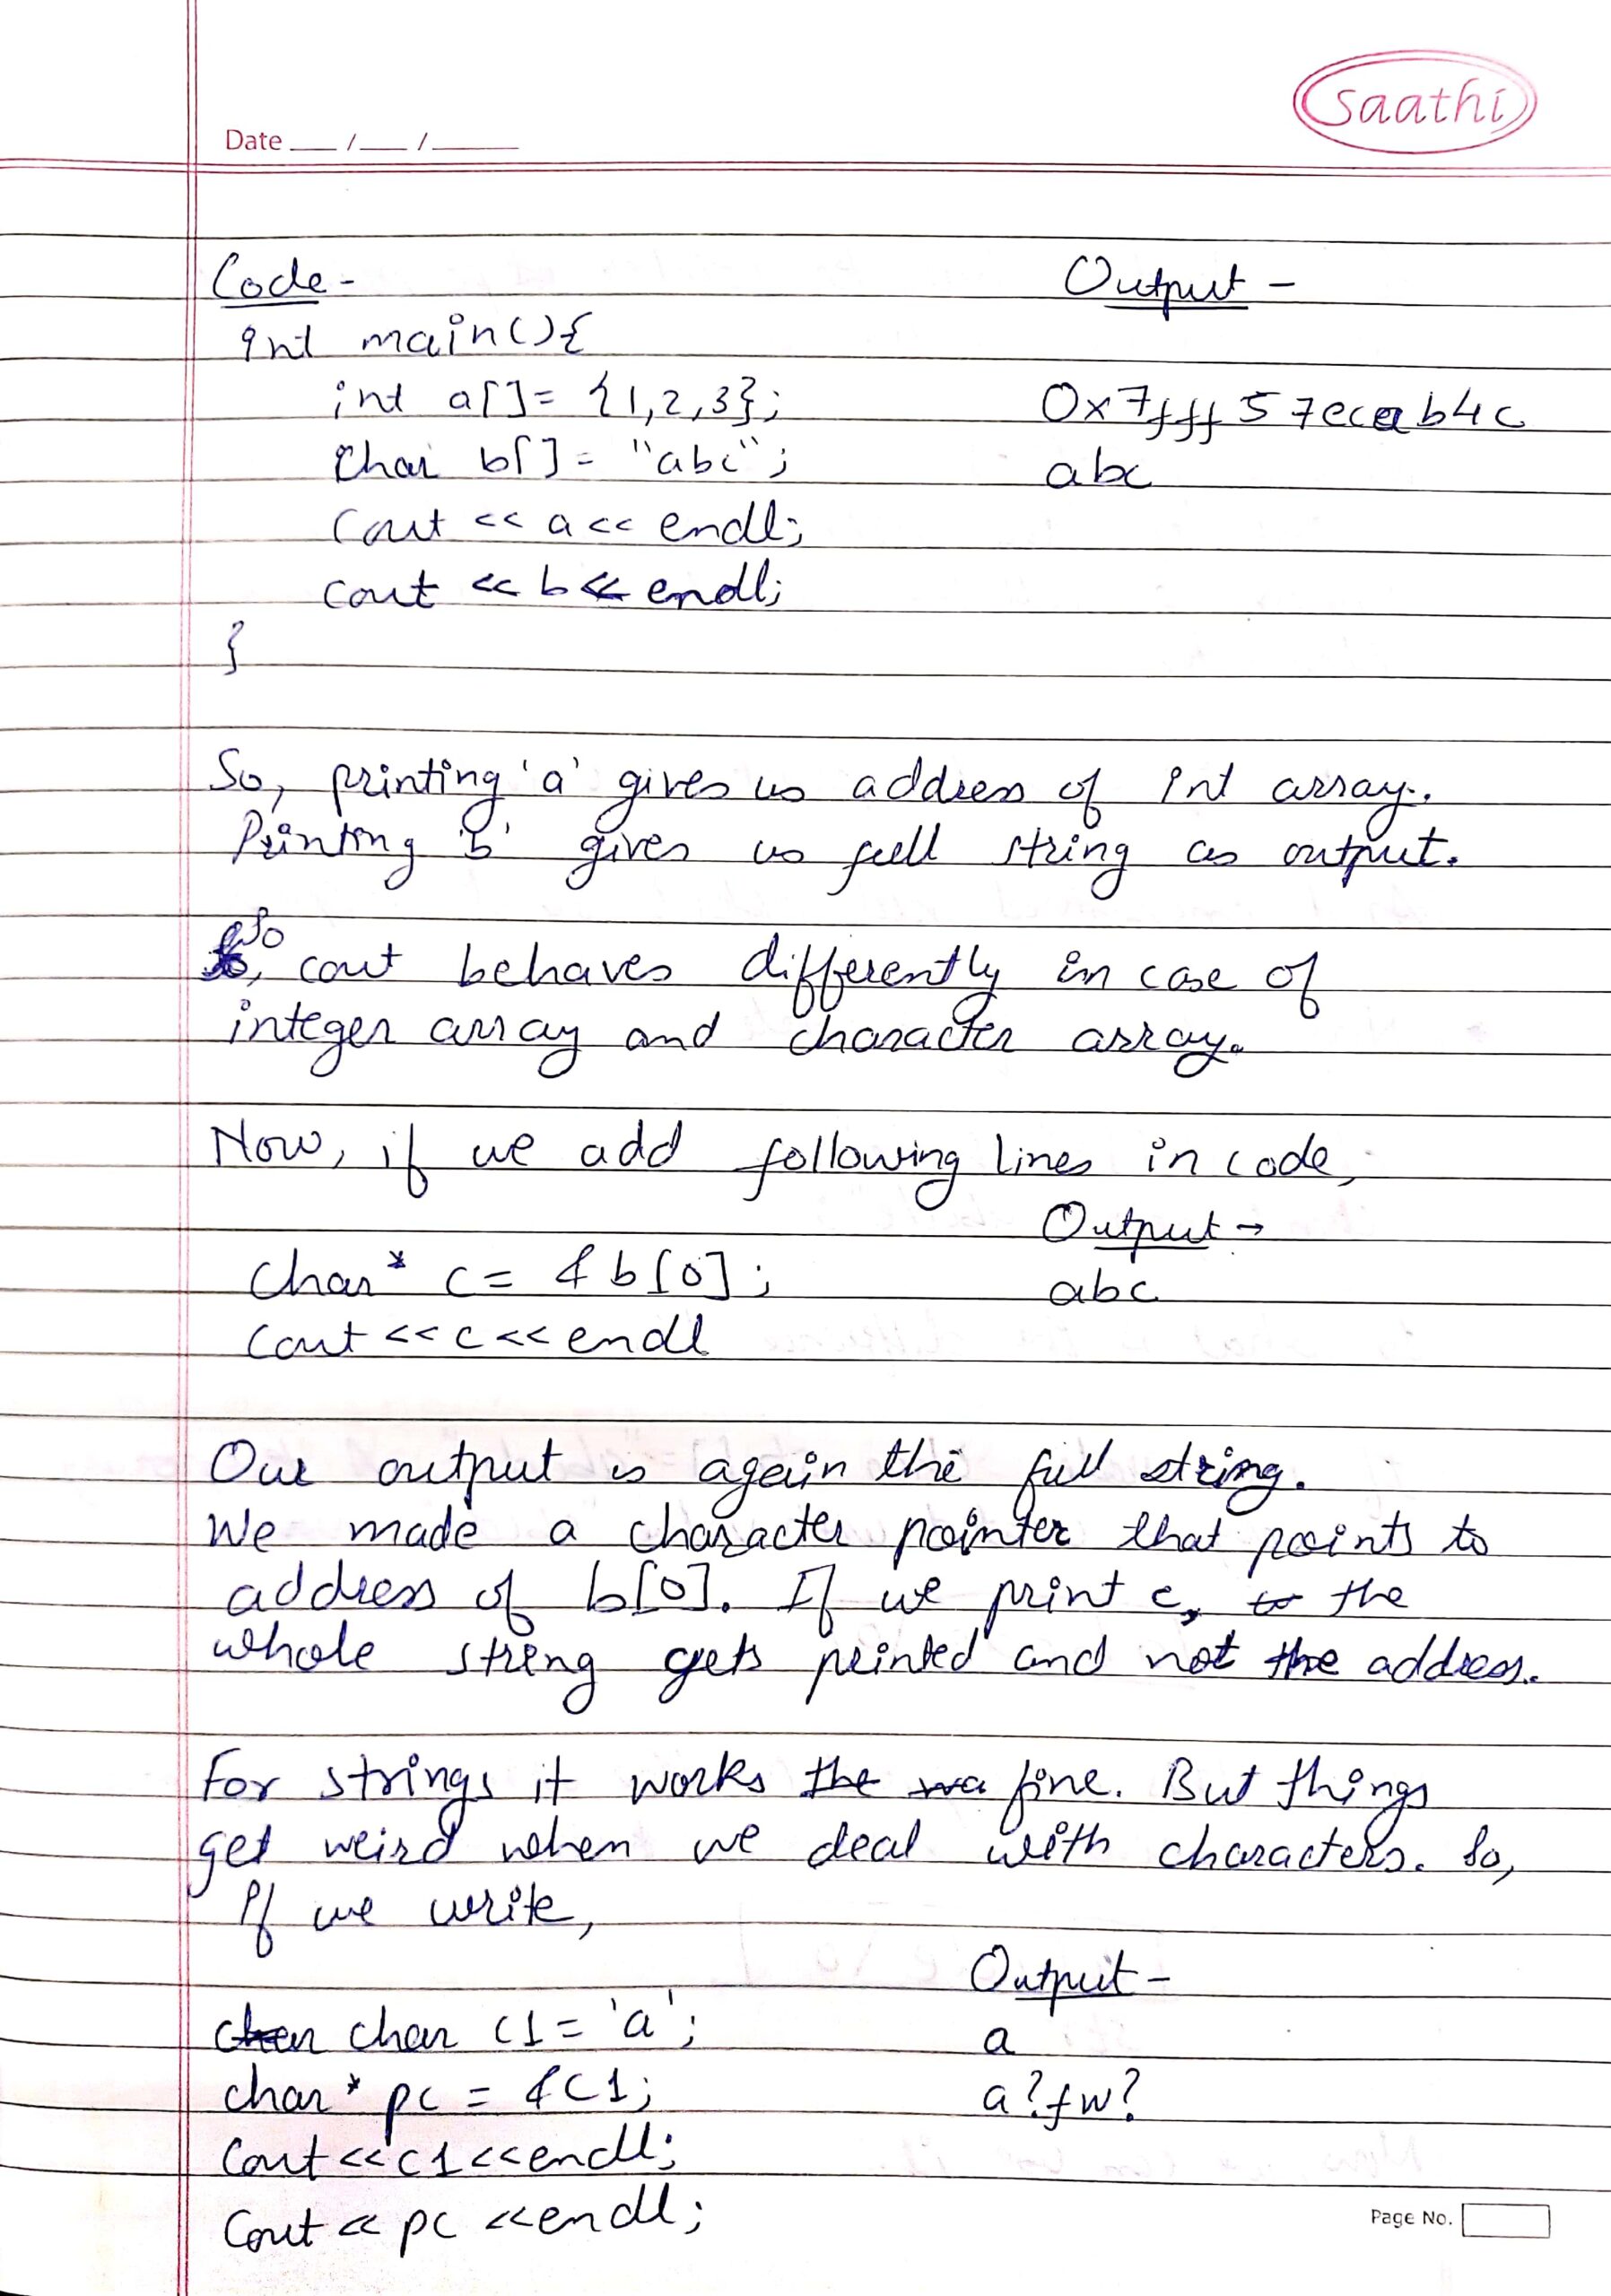 Saathi
Date ___ /___ /______
Code - Output -
int main(){
int a[]= {1,2,3}; 0x7fff57eceab4c
char b[]= "abc"; abc
Cout << a << endl;
cout << b << endl;
}
So, printing 'a' gives us address of int array.
Printing 'b' gives us full string as output.
So, cout behaves differently in case of
integer array and character array.
Now, if we add following lines in code,
Output →
char* c= &b[0]; abc
Cout << c << endl
Our output is again the full string.
We made a character pointer that points to
address of b[0]. If we print c, the
whole string gets printed and not the address.
For strings it works fine. But things
get weird when we deal with characters. So,
If we write,
Output -
char c1= 'a'; a
char* pc = &c1; a?fw?
Cout << c1 << endl;
Cout << pc << endl;
Page No.